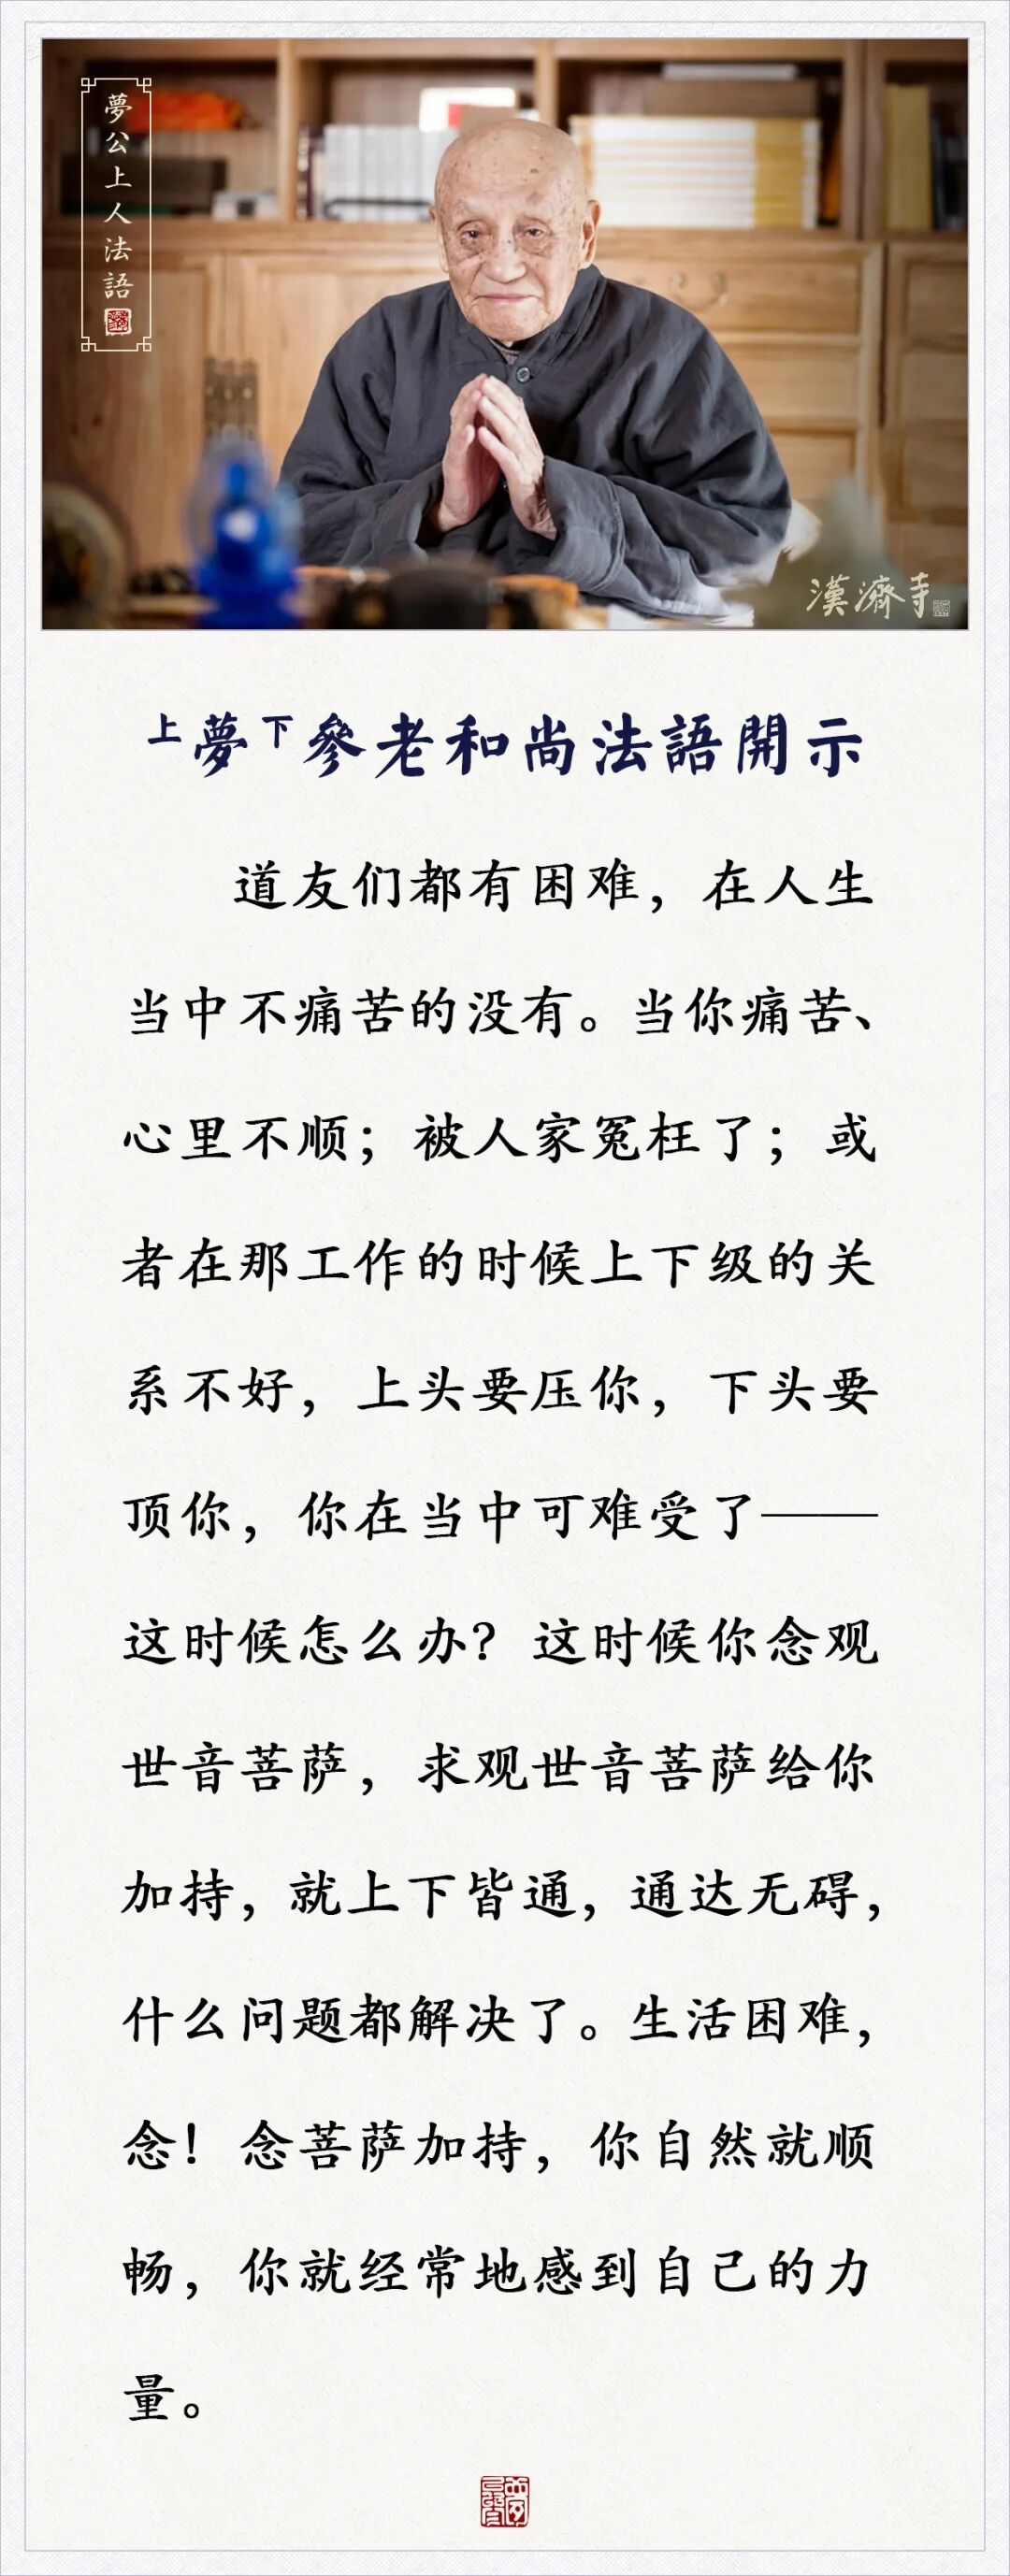 夢公上人法語
漢濟寺
上夢下參老和尚法語開示
道友们都有困难，在人生
当中不痛苦的没有。当你痛苦、
心里不顺；被人家冤枉了；或
者在那工作的时候上下级的关
系不好，上头要压你，下头要
顶你，你在当中可难受了——
这时候怎么办？这时候你念观
世音菩萨，求观世音菩萨给你
加持，就上下皆通，通达无碍，
什么问题都解决了。生活困难，
念！念菩萨加持，你自然就顺
畅，你就经常地感到自己的力
量。